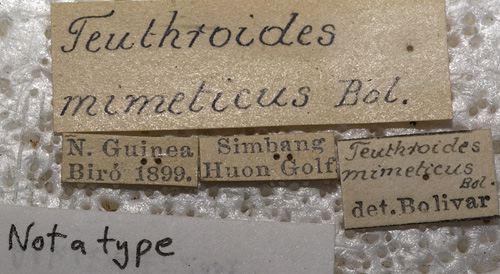 Teuthroides
mimeticus Bol.
N. Guinea
Biró 1899.
Simbang
Huon Golf
Teuthroides
mimeticus
Bol.
det. Bolivar
Not a type